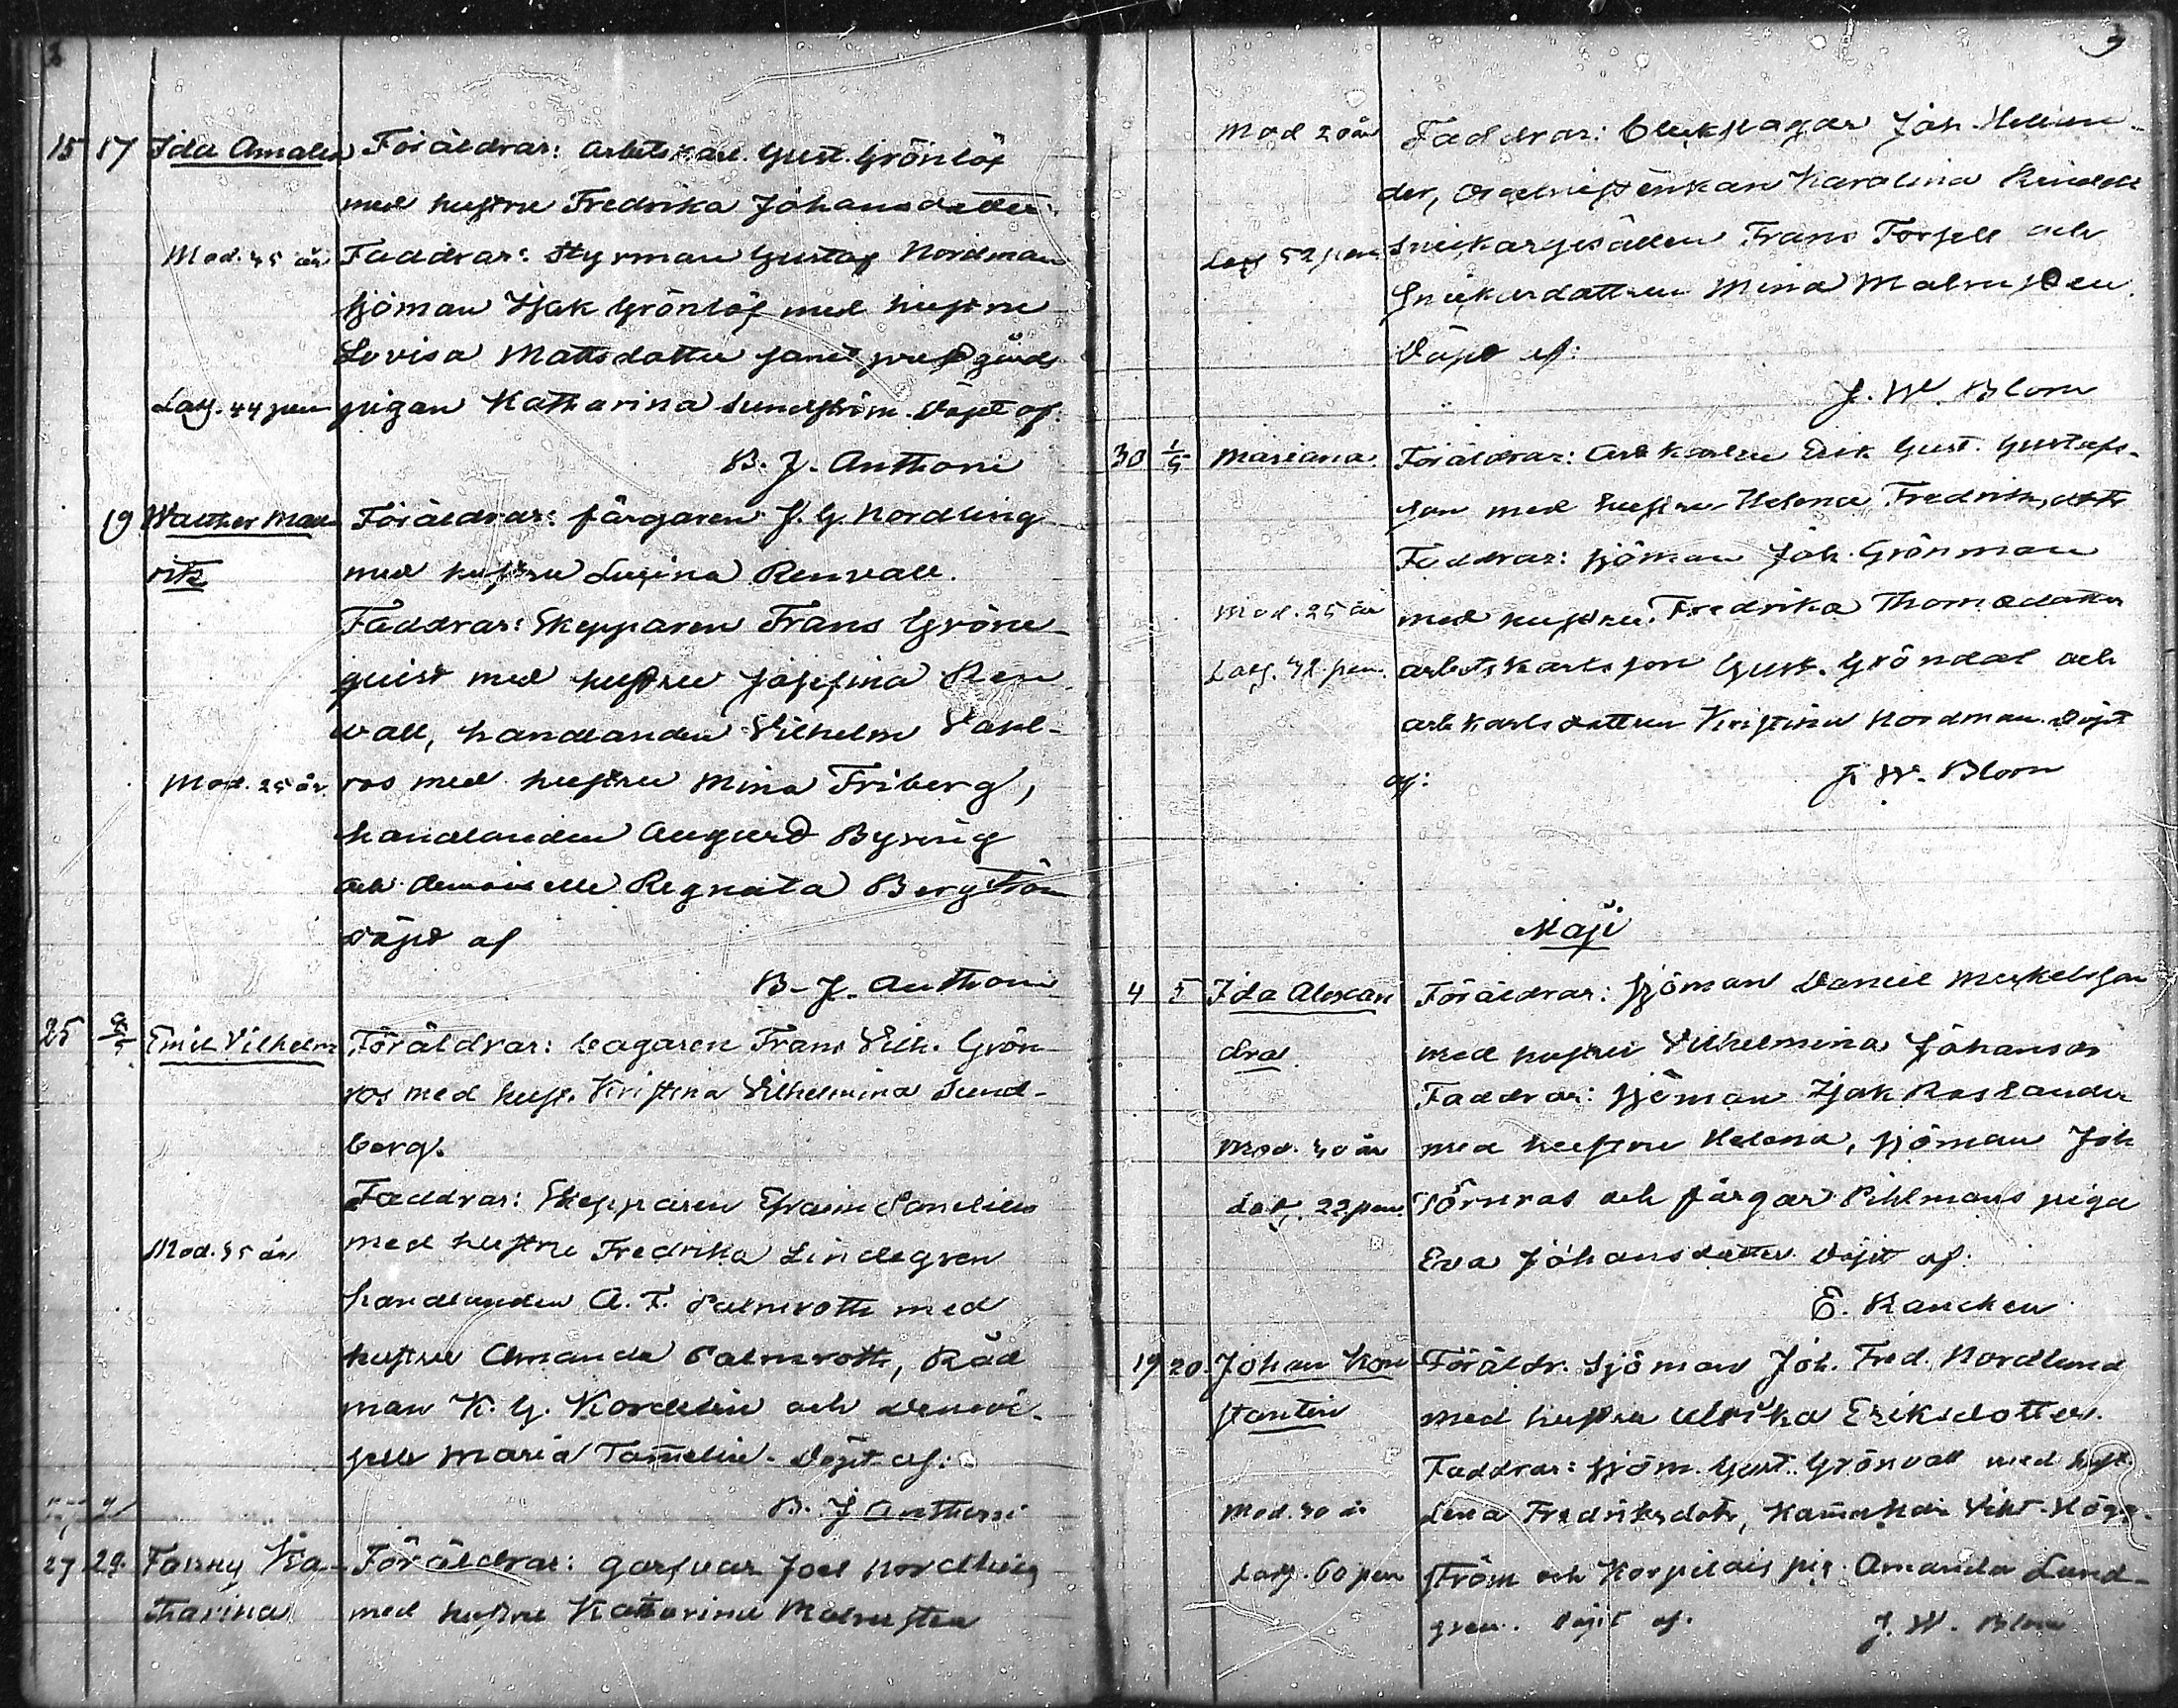 15 17 Ida Amalia Föräldrar: arbetskarl. Gust. Grönlöf
med hustru Fredrika Johansdotter
Mod. 35 år Faddrar: Styrman Gustaf Nordman
sjöman Isak Grönlöf med hustru
Lovisa Mattsdotter samt prestgårds
Latg. 44 pen pigan Katharina Sundström. Döpt af.
B. J. Anthoni
19 Walther Mau- Föräldrar: färgaren J. G. Nordling
ritz med hustru Lusina Renvall.
Faddrar: Skepparen Frans Gröne-
quist med hustru Josefina Ren
wall, handlanden Vilhelm Vahl-
Mod. 25 år. ros med hustru Mina Friberg,
handlanden August Byring
och demoiselle Regnata Bergström
döpt af
B. J. Anthoni
25 Emil Vilhelm Föräldrar: bagaren Frans Vilh. Grön
ros med hust. Kristina Vilhelmina Sund-
berg.
Faddrar: Skepparen Efraim
Mod. 35 år med hustru Fredrika Lindegren
handlanden A. F. Palmroth med
hustru Amanda Palmroth, Råd
man K. G. Kordelin och demoi-
selle Maria Tamelin. Döpt af:
B. J Anthoni
27 29. Fanny Ka- Föräldrar: garfvar Joel Nordling
tharina med hustru Katharina Malmsten
Mod 20 år Faddrar: Joh. Helin
der, Karolina
Latg 52 pen Snickargesällen Frans Forsell och
Snickardottren Mina Malmsten.
Döpt af:
J. W. Blom
30 1/5 Mariana. Föräldrar: Arb karlen Erik Gust. Gustafs-
son med hustru Helena Fredriksdottr
Faddrar: sjöman Joh. Grönman
Mod. 25 år med hustru Fredrika Thomasdotter
Latg. pen. arbetskarlsson Gust. Gröndal och
arb karls dottren Kristina Nordman. Döpt
af: J. W. Blom
Maji
4 5 Ida Alexan Föräldrar: Sjöman Daniel Mickelsson
dra. med hustru Vilhelmina Johansdr
Faddrar: sjöman Isak Roslander
Mod. 40 år med hustru Helena, sjöman Joh
Latg. 22 pen. Törnros och färgar Pihlmans piga
Eva Johansdotter. Döpt af:
E. Rancken
19 20. Johan Kon Föräldr. Sjöman Joh. Fred. Nordlund
stantin med hustru Ulrika Eriksdotter.
Faddrar: sjöm. Gust. Grönvall med hust.
Mod. 30 år Lena Fredriksdotr, Vikt. Hög-
Latg. 60 pen ström och Hospitals pig. Amanda Lund-
gren. Döpt af. J. W. Blom